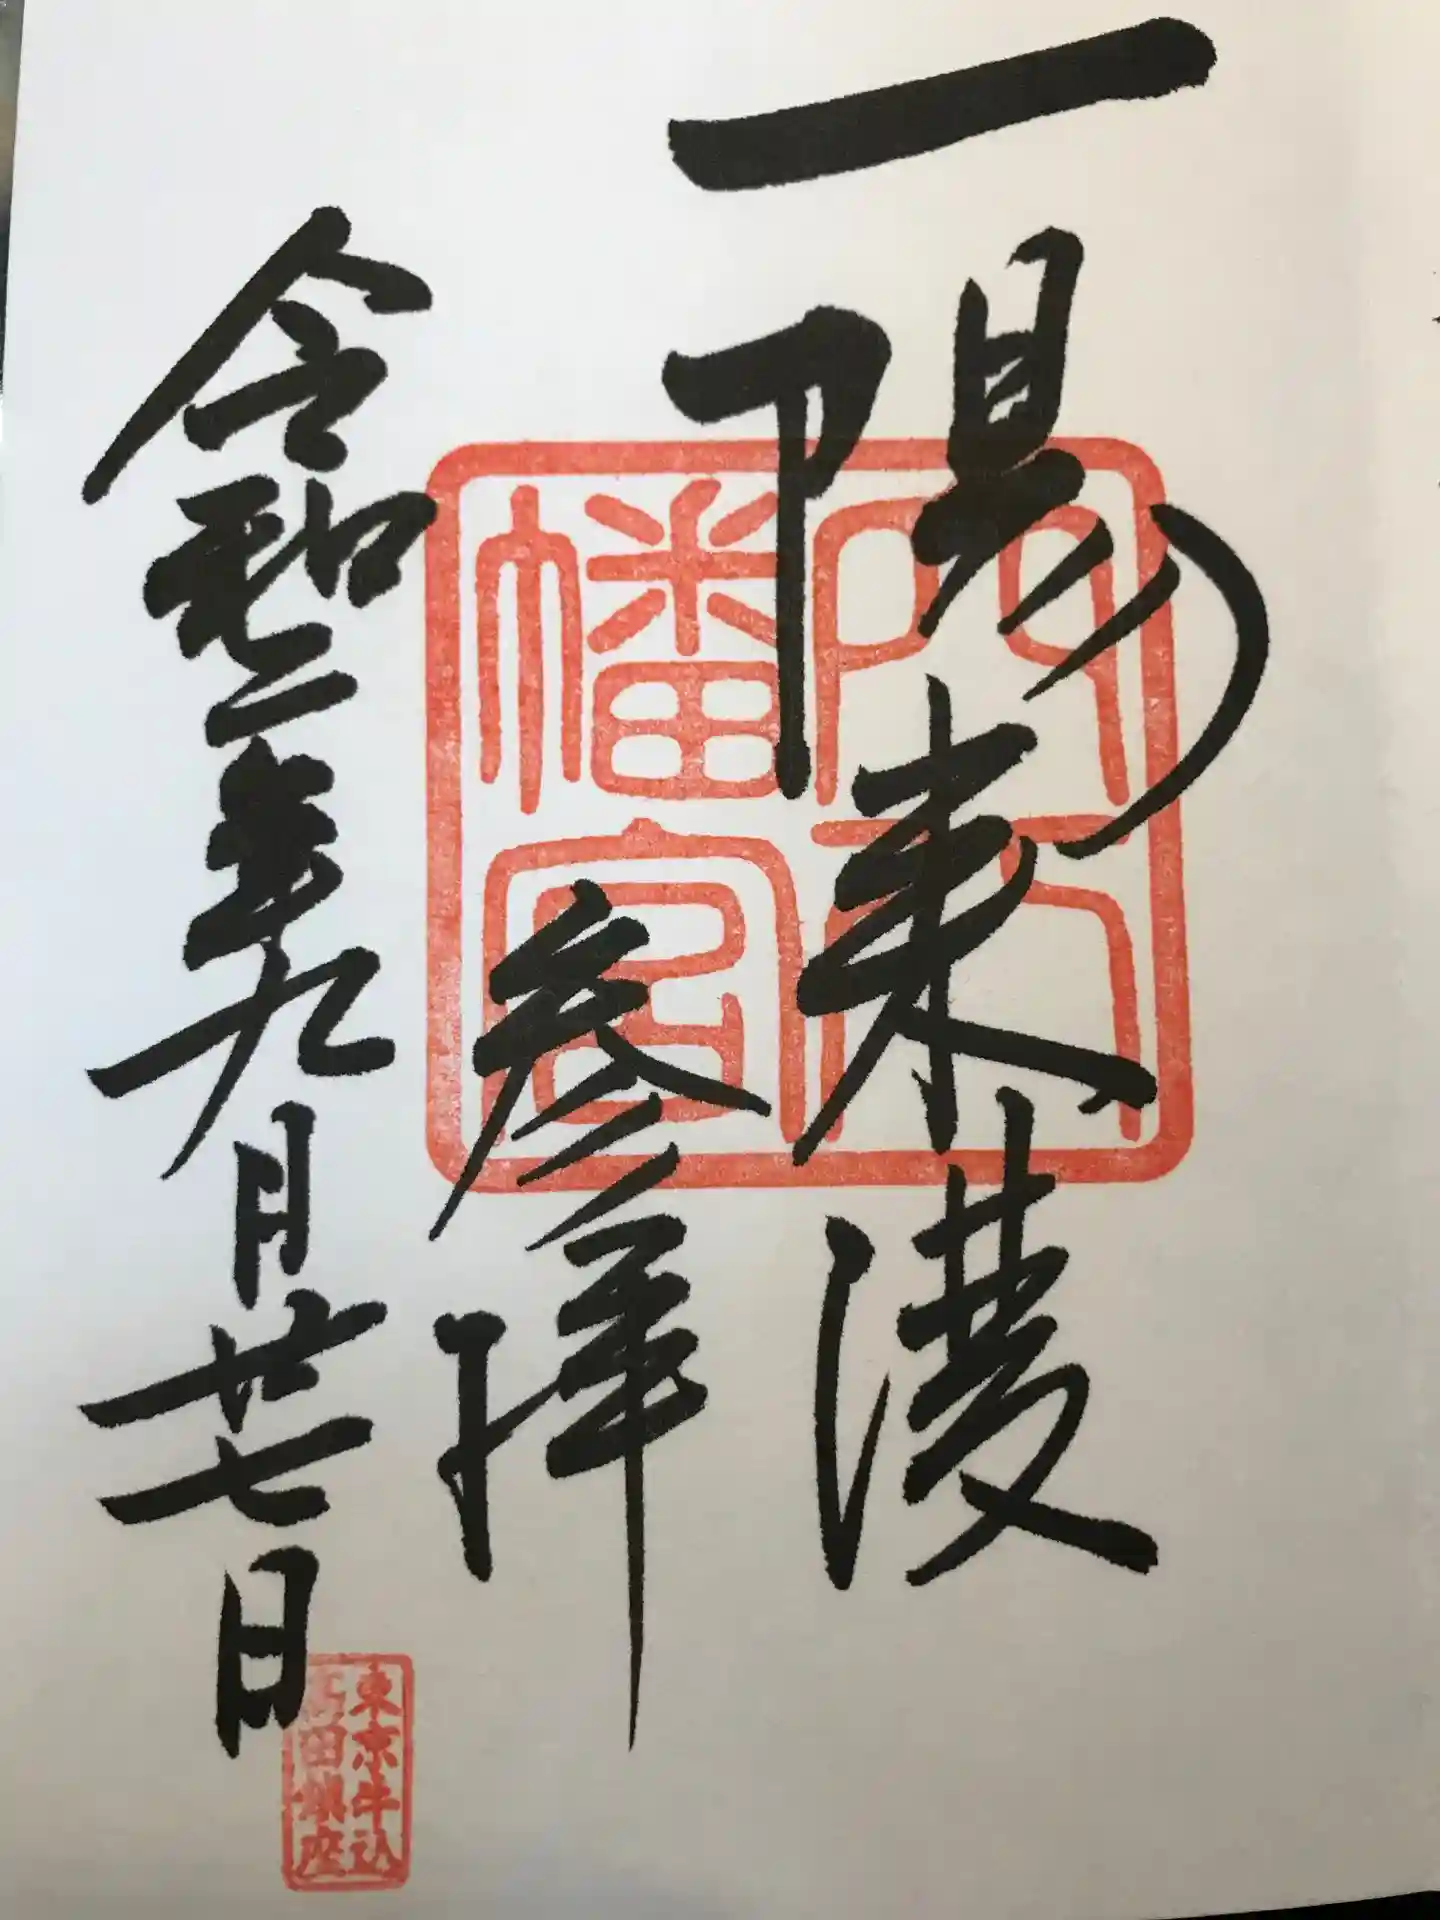 一陽来復
参拝
令和二年九月廿七日
穴八幡宮
東京牛込
高田鎮座